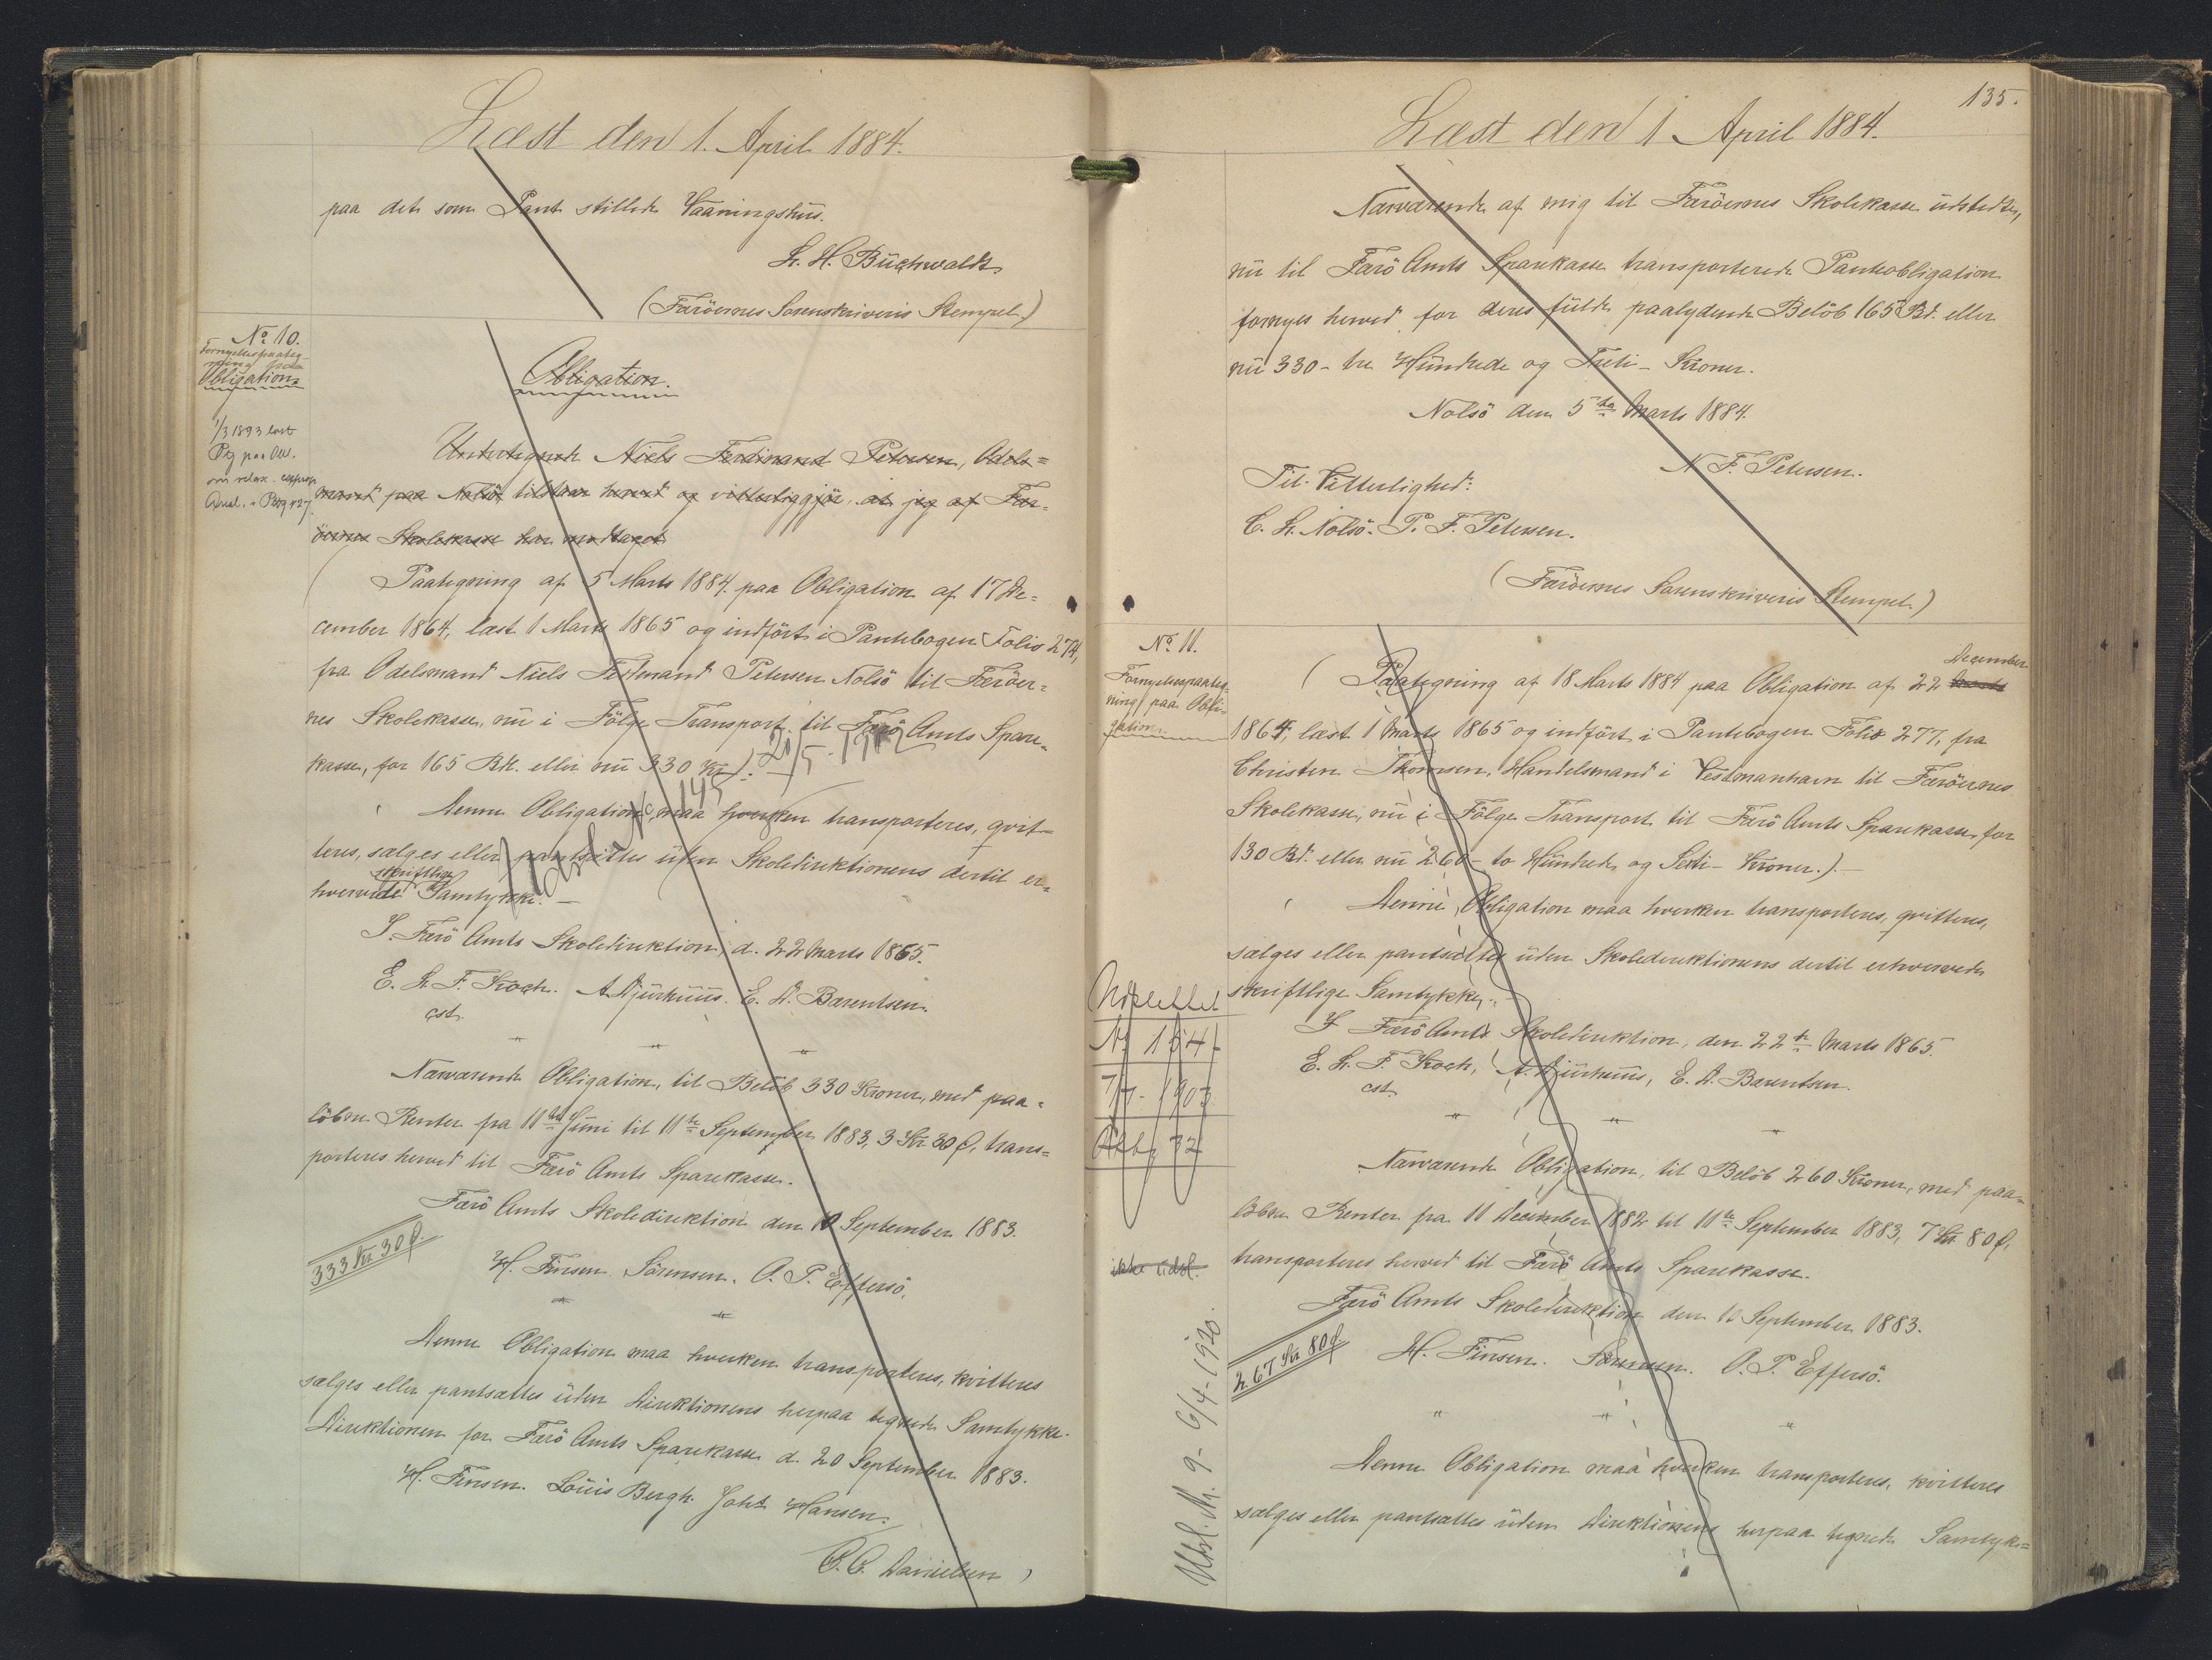 Læst den 1. April 1884.
paa det som Pant stillede Vaaningshus.
L. H. Buchwaldt
(Færöernes Sorenskriveris Stempel)
No 10.
Fornyelsespaateg-
ning paa
Obligation
1/3 1893 læst
Obligation.
Undertegnede Niels Ferdinand Petersen, Odels=
mand paa Nolsö, tilstaar herved og vitterliggjör, at jeg af Fær=
öernes Skolekasse har modtaget
( Paategning af 5 Marts 1884 paa Obligation af 17 De=
cember 1864, læst 1 Marts 1865 og indfört i Pantebogen Folio 274,
fra Odelsmand Niels Ferdinand Petersen Nolsö til Færöer=
nes Skolekasse, nu i Fölge Transport til Færö Amts Spare=
kasse, for 165 Rd. eller nu 330 Kr.):
Denne Obligation maa hverken transporteres, qvit=
teres, sælges eller pantsættes uden Skoledirektionens dertil er=
skriftlige
hvervede Samtykke. —
I Færö Amts Skoledirektion, d. 22 Marts 1865.
E. L. F. Koch. A. Djurhuus. E. A. Barentsen.
cst.
" " "
Nærværende Obligation, til Belöb 330 Kroner, med paa=
löbne Renter fra 11te Juni til 11te September 1883, 3 Kr 30 Ø, trans=
porteres herved til Færö Amts Sparekasse.
Færö Amts Skoledirektion den 10 September 1883.
333 Kr. 30 Ø.
H. Finsen. Sörensen. O. P. Effersö.
" "
Denne Obligation maa hverken transporteres, kvitteres
sælges eller pantsættes uden Direktionens herpaa tegnede Samtykke.
Direktionen for Færö Amts Sparekasse d. 20 September 1883.
H. Finsen. Louis Bergh. Johs Hansen.
O. C. Danielsen )
135.
Læst den 1 April 1884.
Nærværende af mig til Færöernes Skolekasse udstedte,
nu til Færö Amts Sparekasse transporterede Panteobligation
fornyes herved for deres fulde paalydende Belöb 165 Rd. eller
nu 330 - tre Hundrede og Treti - Kroner.
Nolsö den 5te Marts 1884.
N. F. Petersen.
Til Vitterlighed:
C. L. Nolsö. P. F. Petersen.
(Færöernes Sorenskriveris Stempel.)
No 11.
Fornyelsespaateg-
ning paa Obli-
gation.
December
( Paategning af 18 Marts 1884 paa Obligation af 22 Marts
1864, læst 1 Marts 1865 og indfört i Pantebogen Folio 277, fra
Christen Thomsen, Handelsmand i Vestmanhavn til Færöernes
Skolekasse, nu i Fölge Transport til Færö Amts Sparekasse, for
130 Rd. eller nu 260 - to Hundrede og Sexti - Kroner.). —
Denne Obligation maa hverken transporteres, qvitteres,
sælges eller pantsættes uden Skoledirektionens dertil erhvervede
skriftlige Samtykke. —
I Færö Amts Skoledirektion, den 22te Marts 1865.
E. L. F. Koch, A. Djurhuus, E. A. Barentsen.
cst.
" " "
Udslettet
No 154
7/7 - 1903
ikke udsl.
Nærværende Obligation, til Belöb 260 Kroner, med paa=
löbne Renter fra 11 December 1882 til 11te September 1883, 7 Kr 80 Ø,
transporteres herved til Færö Amts Sparekasse.
Færö Amts Skoledirektion den 10 September 1883.
267 Kr 80 Ø
H. Finsen. Sörensen. O. P. Effersö.
" " "
Denne Obligation maa hverken transporteres, kvitteres
sælges eller pantsættes uden Direktionens herpaa tegnede Samtyk=
Udsl. Nr. 9 - 6/4 - 1920.